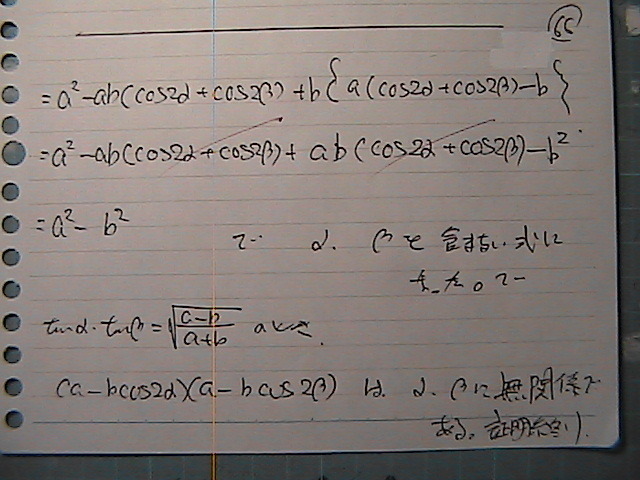 66
= a² - ab(cos2α + cos2β) + b{a(cos2α + cos2β) - b}
= a² - ab(cos2α + cos2β) + ab(cos2α + cos2β) - b²
= a² - b²
で α. βを含まない式に
なった。で
tanα・tanβ = √((a-b)/(a+b)) のとき.
(a - bcos2α)(a - bcos2β) は α. βに無関係で
ある. 証明終り).